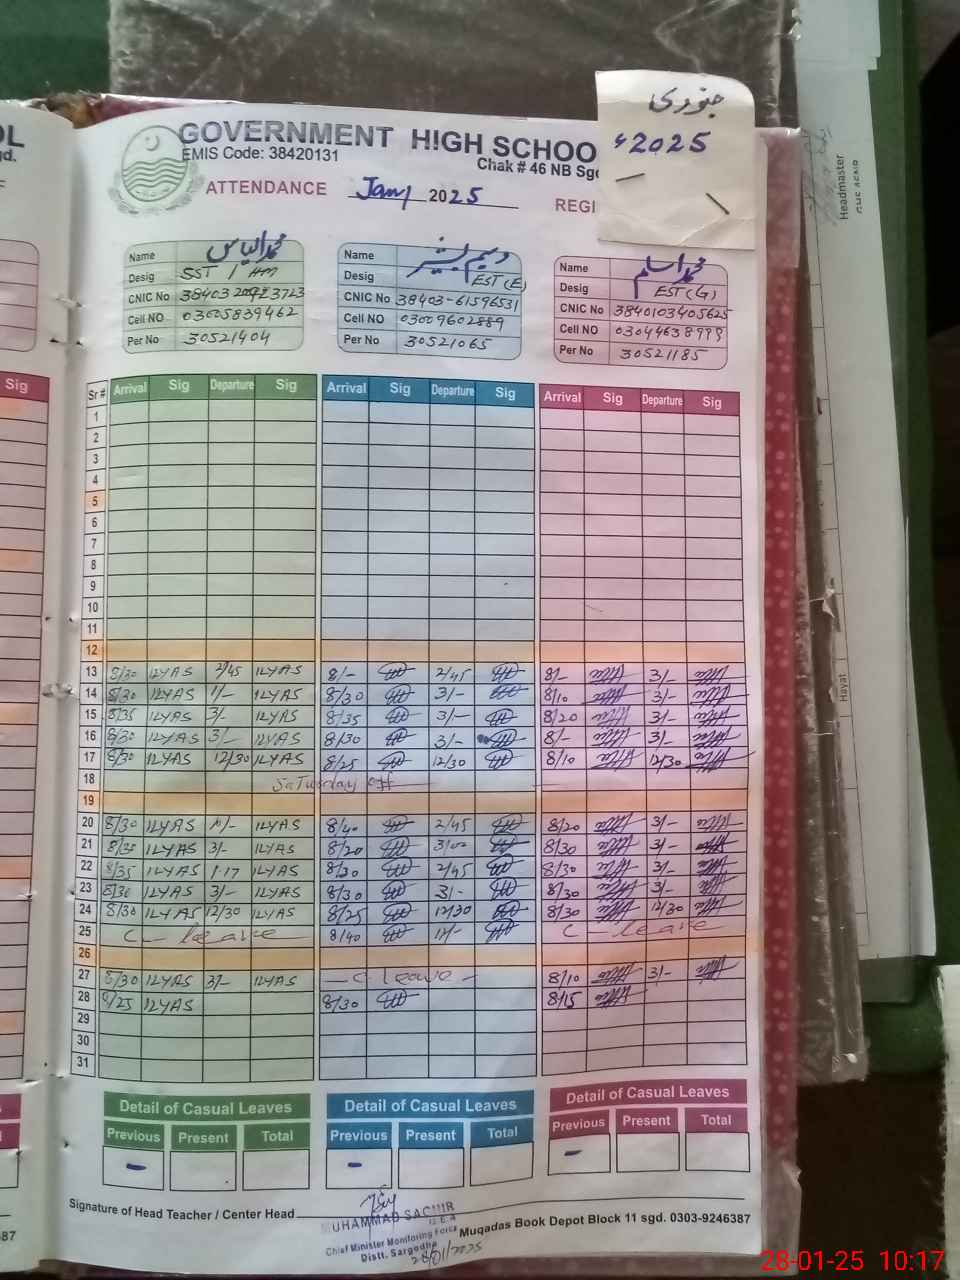 جنوری
2025ء
GOVERNMENT HIGH SCHOO
EMIS Code: 38420131
Chak # 46 NB Sgd
ATTENDANCE Jan 2025 REGI
Name محمد الیاس
Desig SST / HM
CNIC No
Cell NO 03005839462
Per No 30521404
Name وسیم بشیر
Desig EST (E)
CNIC No 38403-61596531
Cell NO 03009602889
Per No 30521065
Name محمد اسلم
Desig EST (G)
CNIC No 3840103405625
Cell NO 03044638999
Per No 30521185
Sr # Arrival Sig Departure Sig Arrival Sig Departure Sig Arrival Sig Departure Sig
1
2
3
4
5
6
7
8
9
10
11
12
13 8/30 ILYAS 2/45 ILYAS 8/- 2/45 8/- 3/-
14 8/30 ILYAS 1/- ILYAS 8/30 3/- 8/10 3/-
15 8/35 ILYAS 3/- ILYAS 8/35 3/- 8/20 3/-
16 8/30 ILYAS 3/- ILYAS 8/30 3/- 8/- 3/-
17 8/30 ILYAS 12/30 ILYAS 8/25 12/30 8/10 12/30
18 Saturday off
19
20 8/30 ILYAS ILYAS 8/40 2/45 8/20 3/-
21 8/35 ILYAS 3/- ILYAS 8/20 3/00 8/30 3/-
22 8/35 ILYAS 1·17 ILYAS 8/30 2/45 8/30 3/-
23 8/30 ILYAS 3/- ILYAS 8/30 3/- 8/30 3/-
24 8/30 ILYAS 12/30 ILYAS 8/25 12/30 8/30 12/30
25 C - leave 8/40 C - leave
26
27 8/30 ILYAS 3/- ILYAS - C leave - 8/10 3/-
28 8/25 ILYAS 8/30 8/15
29
30
31
Detail of Casual Leaves Detail of Casual Leaves Detail of Casual Leaves
Previous Present Total Previous Present Total Previous Present Total
- - -
Signature of Head Teacher / Center Head
MUHAMMAD
Chief Minister Monitoring Force
Distt. Sargodha
28/01/2025
Muqadas Book Depot Block 11 sgd. 0303-9246387
Sig
87
Headmaster
Hayat
28-01-25 10:17